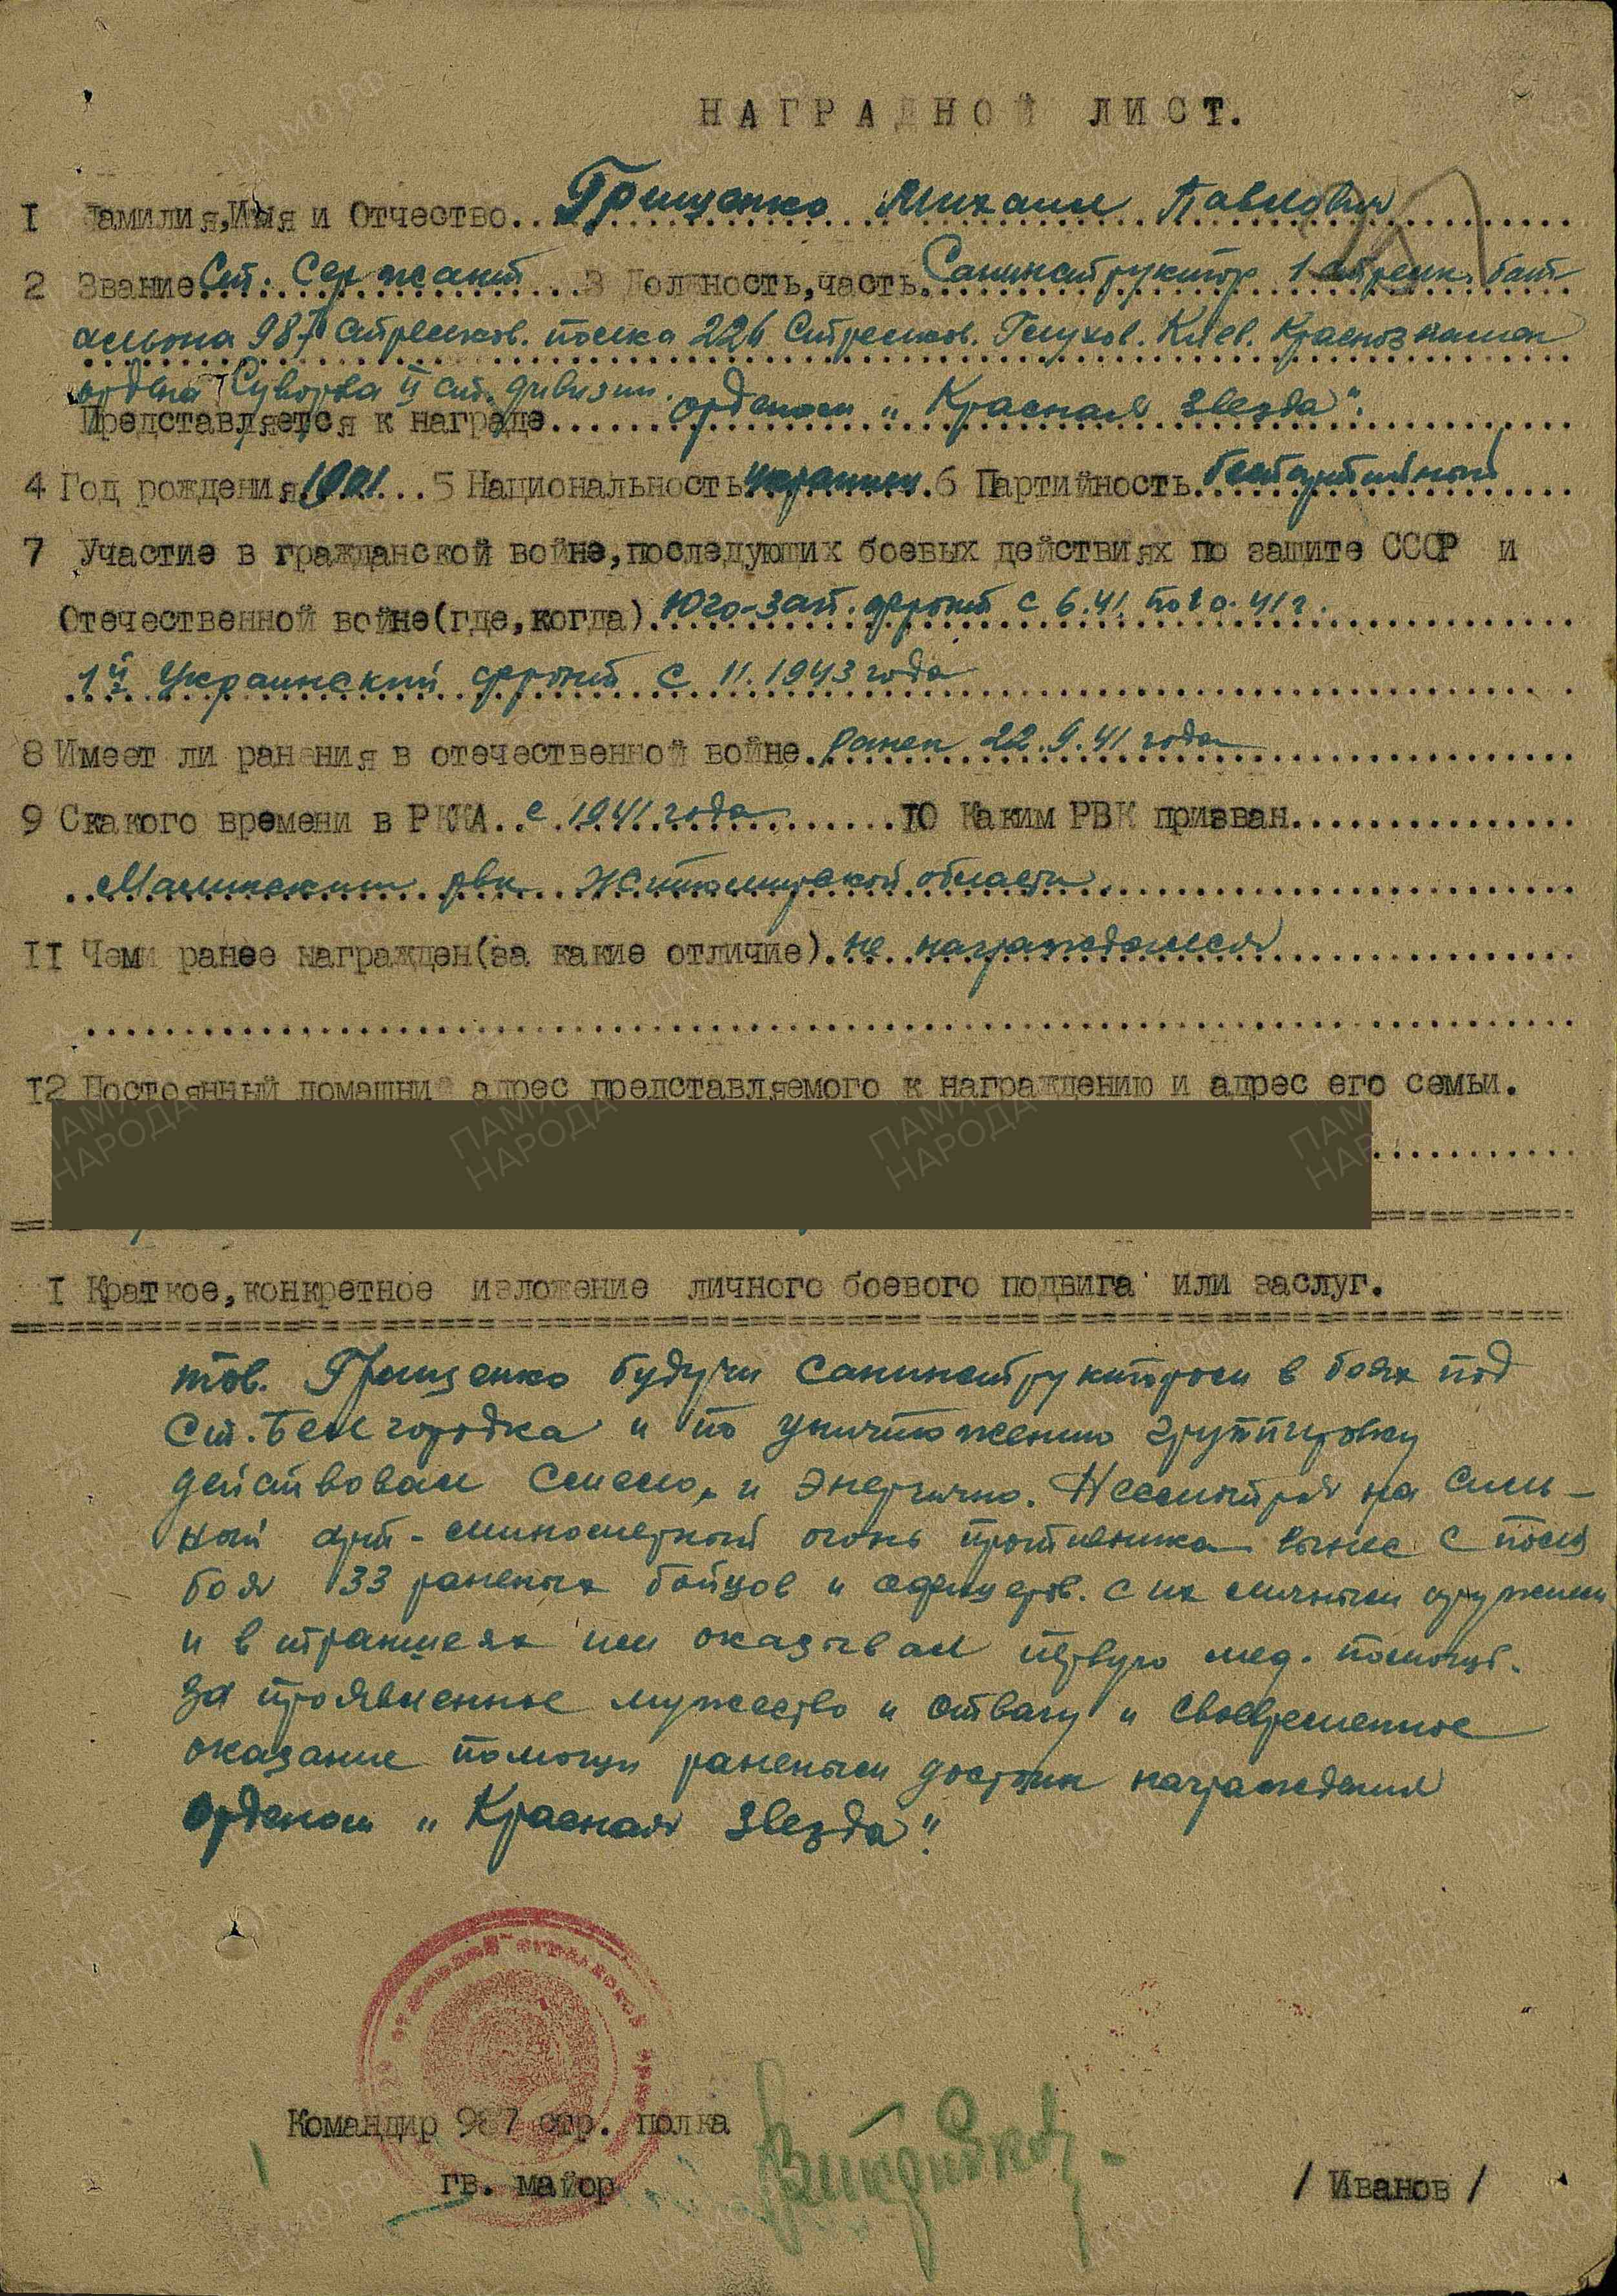 НАГРАДНОЙ ЛИСТ.
I Фамилия, Имя и Отчество.. Грищенко Михаил Павлович
2 Звание Ст. Сержант 3 Должность, часть. Санинструктор 1 стрелк. бат
альона 987 стрелков. полка 226 Стрелков. Глухов. Киев. Краснознамен
ордена Суворова II ст. дивизии.
Представляется к награде... орденом „Красная Звезда".
4 Год рождения 1901... 5 Национальность украинец. 6 Партийность. беспартийный
7 Участие в гражданской войне, последующих боевых действиях по защите СССР и
Отечественной войне (где, когда). Юго-Зап. фронт с 6.41. по 10.41 г.
1й Украинский фронт с 11.1943 года
8 Имеет ли ранения в отечественной войне. ранен 22.9.41 года
9 Скакого времени в РККА.. с 1941 года 10 Каким РВК призван.
Малинским рвк. Житомирской области.
II Чем ранее награжден (за какие отличие). не награждался
12 Постоянный домашний адрес представляемого к награждению и адрес его семьи.
I Краткое, конкретное изложение личного боевого подвига или заслуг.
тов. Грищенко будучи санинструктором в боях под
ст. Белгородка и по уничтожению группировку
действовал смело, и энергично. Несмотря на силь-
ный арт-минометный огонь противника вынес с поля
боя 33 раненых бойцов и офицеров. с их личным оружием
и в траншеях им оказывал первую мед. помощь.
За проявленное мужество и отвагу и своевременное
оказание помощи раненым достоин награждения
орденом „Красная Звезда".
Командир 987 стр. полка
гв. майор
/ Иванов /